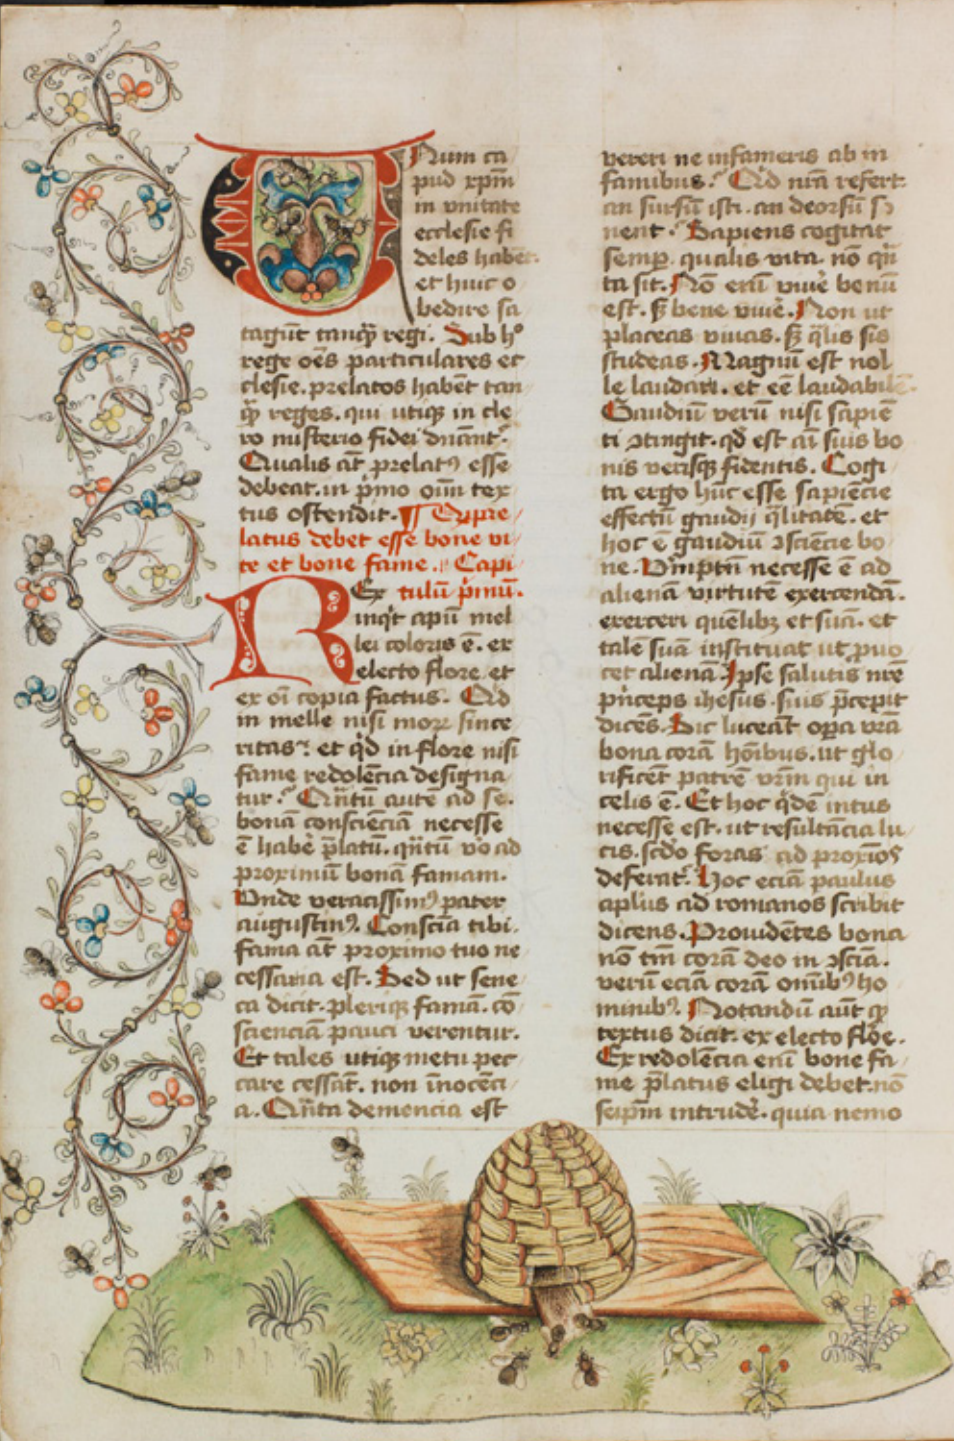 Unum ca
pud xpm̄
in vnitate
ecclesie fi
deles habēt
et huic o
bedire sa
tagūt tanq̄ȝ regi. Sub hᵒ
rege oēs particulares ec
clesie. prelatos habēt tan
q̄ȝ reges. qui utiqȝ in cle
ro misterio fidei
Qualis āt prelatꝰ esse
debeat. in p̄mo om̄ tex
tus ostendit. ¶ Qȝ pre
latus debet esse bone vi
te et bone fame. Capi
tulū p̄mū.
Rex
inqͥt apiū mel
lei coloris ē. ex
electo flore. et
ex oī copia factus. Qͥd
in melle nisi moꝝ since
ritas? et qͥd in flore nisi
fame redolēcia designa
tur? Qn̄tū autē ad se.
bonā consciēciā necesse
ē habē p̄latū. qn̄tū vo ad
proximū bonā famam.
Vnde veracissimꝰ pater
augustinꝰ. Consciā tibi.
fama āt proximo tuo ne
cessaria est. Sed ut sene
ca dicit. pleriqȝ famā. cō
scienciā pauci verentur.
Et tales utiqȝ metu pec
care cessāt. non īnocēci
a. Qn̄ta demencia est
vereri ne infameris ab in
famibus? Qͥd nrā refert
an sursū isti. an deorsū s
nent. Sapiens cogitat
semp̱. qualis vita. nō qn̄
ta sit. Nō enī viuē bonū
est. sȝ bene viuē. Non ut
placeas viuas. sȝ q̄lis sis
studeas. Magnū est nol
le laudari. et eē laudabilē.
Gaudiū verū nisi sapiē
ti ꝯtingit. qd̄ est aī suis bo
nis verisqȝ fidentis. Cogi
ta ergo huc esse sapiēcie
effectū gaudij q̄litatē. et
hoc ē gaudiū ꝯsciēcie bo
ne. necesse ē ad
alienā virtutē exercendā.
exerceri quēlibȝ et suā. et
talē suā instituat ut puo
cet alienā. Ipse salutis nrē
p̄nceps ihesus. suis p̄cepit
dicēs. Sic luceāt oꝑa vrā
bona corā hoībus. ut glo
rificēt patrē vrm̄ qui in
celis ē. Et hoc qͥdē intus
necesse est. ut resultācia lu
cis. scdo foras ad proxīos
deferat. Hoc eciā paulus
aplūs ad romanos scribit
dicens. Prouidētes bona
nō tm̄ corā deo in ꝯsciā.
verū eciā corā omībꝰ ho
minibꝰ. Notandū aūt qȝ
textus dicit. ex electo floe.
Ex redolēcia enī bone fa
me p̄latus eligi debet. nō
seipm̄ intrudē. quia nemo